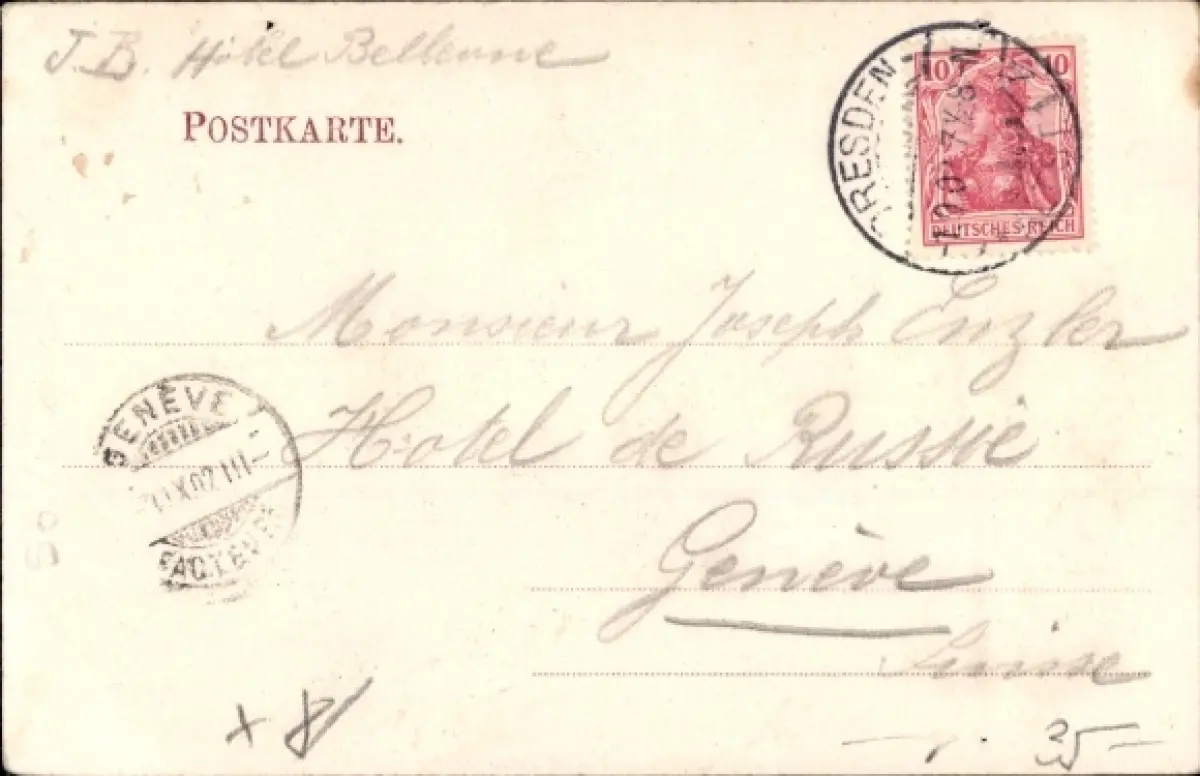 J. B. Hôtel Bellevue
POSTKARTE.
DRESDEN
10 10
DEUTSCHES REICH
Monsieur Joseph Enzler
Hotel de Russie
Genève
Suisse
GENÈVE
X.02 III
FACTEURS
35